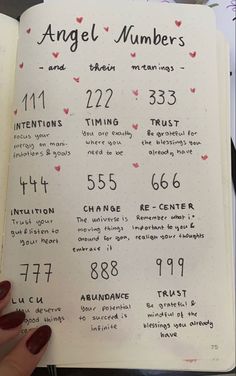 Angel Numbers
- and their meanings -
111 222 333
INTENTIONS TIMING TRUST
Focus your You are exactly Be grateful for
energy on mani- where you the blessings you
festations & goals need to be already have
444 555 666
INTUITION CHANGE RE-CENTER
Trust your The universe is Remember what is
gut & listen to moving things important to you &
your heart around for you, realign your thoughts
embrace it
777 888 999
LUCK ABUNDANCE TRUST
You deserve Your potential Be grateful &
good things to succeed is mindful of the
infinite blessings you already
have
75